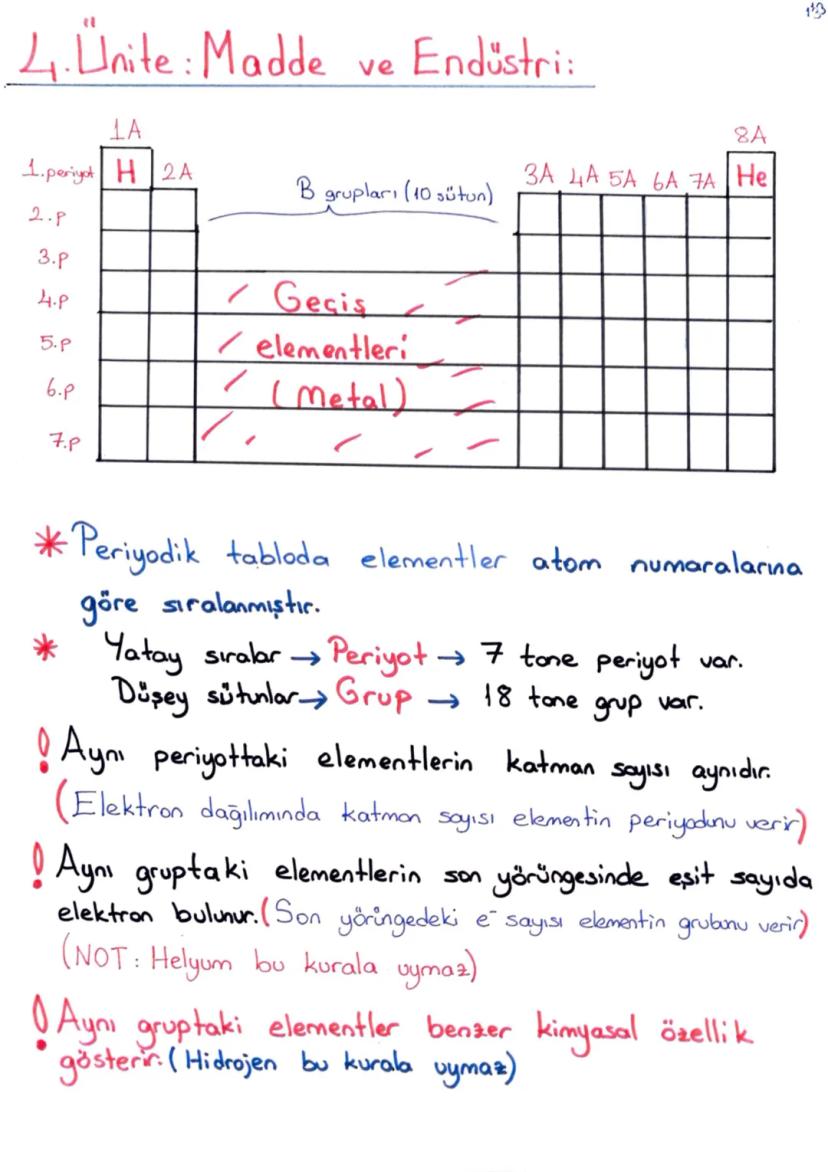 4.Ünite: Madde ve Endüstri:
1A
8A
1.periyot H 2A
B grupları (10 sütun)
3A 4A 5A 6A 7A He
2.p
3.p
4.p Geçiş
5.p elementleri
6.p (Metal)
7.p
* Periyodik tabloda elementler atom numaralarına
göre sıralanmıştır.
* Yatay sıralar → Periyot → 7 tane periyot var.
Düşey sütunlar → Grup → 18 tane grup var.
! Aynı periyottaki elementlerin katman sayısı aynıdır.
(Elektron dağılımında katman sayısı elementin periyodunu verir)
! Aynı gruptaki elementlerin son yörüngesinde eşit sayıda
elektron bulunur. (Son yörüngedeki e⁻ sayısı elementin grubunu verir)
(NOT: Helyum bu kurala uymaz)
! Aynı gruptaki elementler benzer kimyasal özellik
gösterir. (Hidrojen bu kurala uymaz)